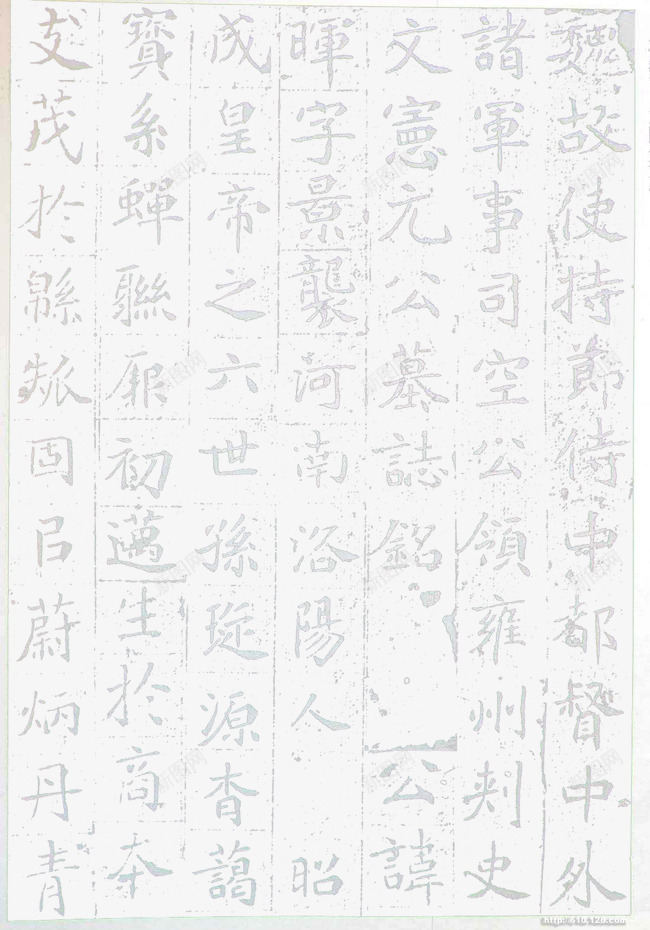 魏故使持節侍中都督中外
諸軍事司空公領雍州刾史
文憲元公墓誌銘 公諱
暉字景襲河南洛陽人 昭
成皇帝之六世孫琁源杳藹
寶系蟬聯厥初邁生於商夲
支茂於緜瓞固已蔚炳丹青